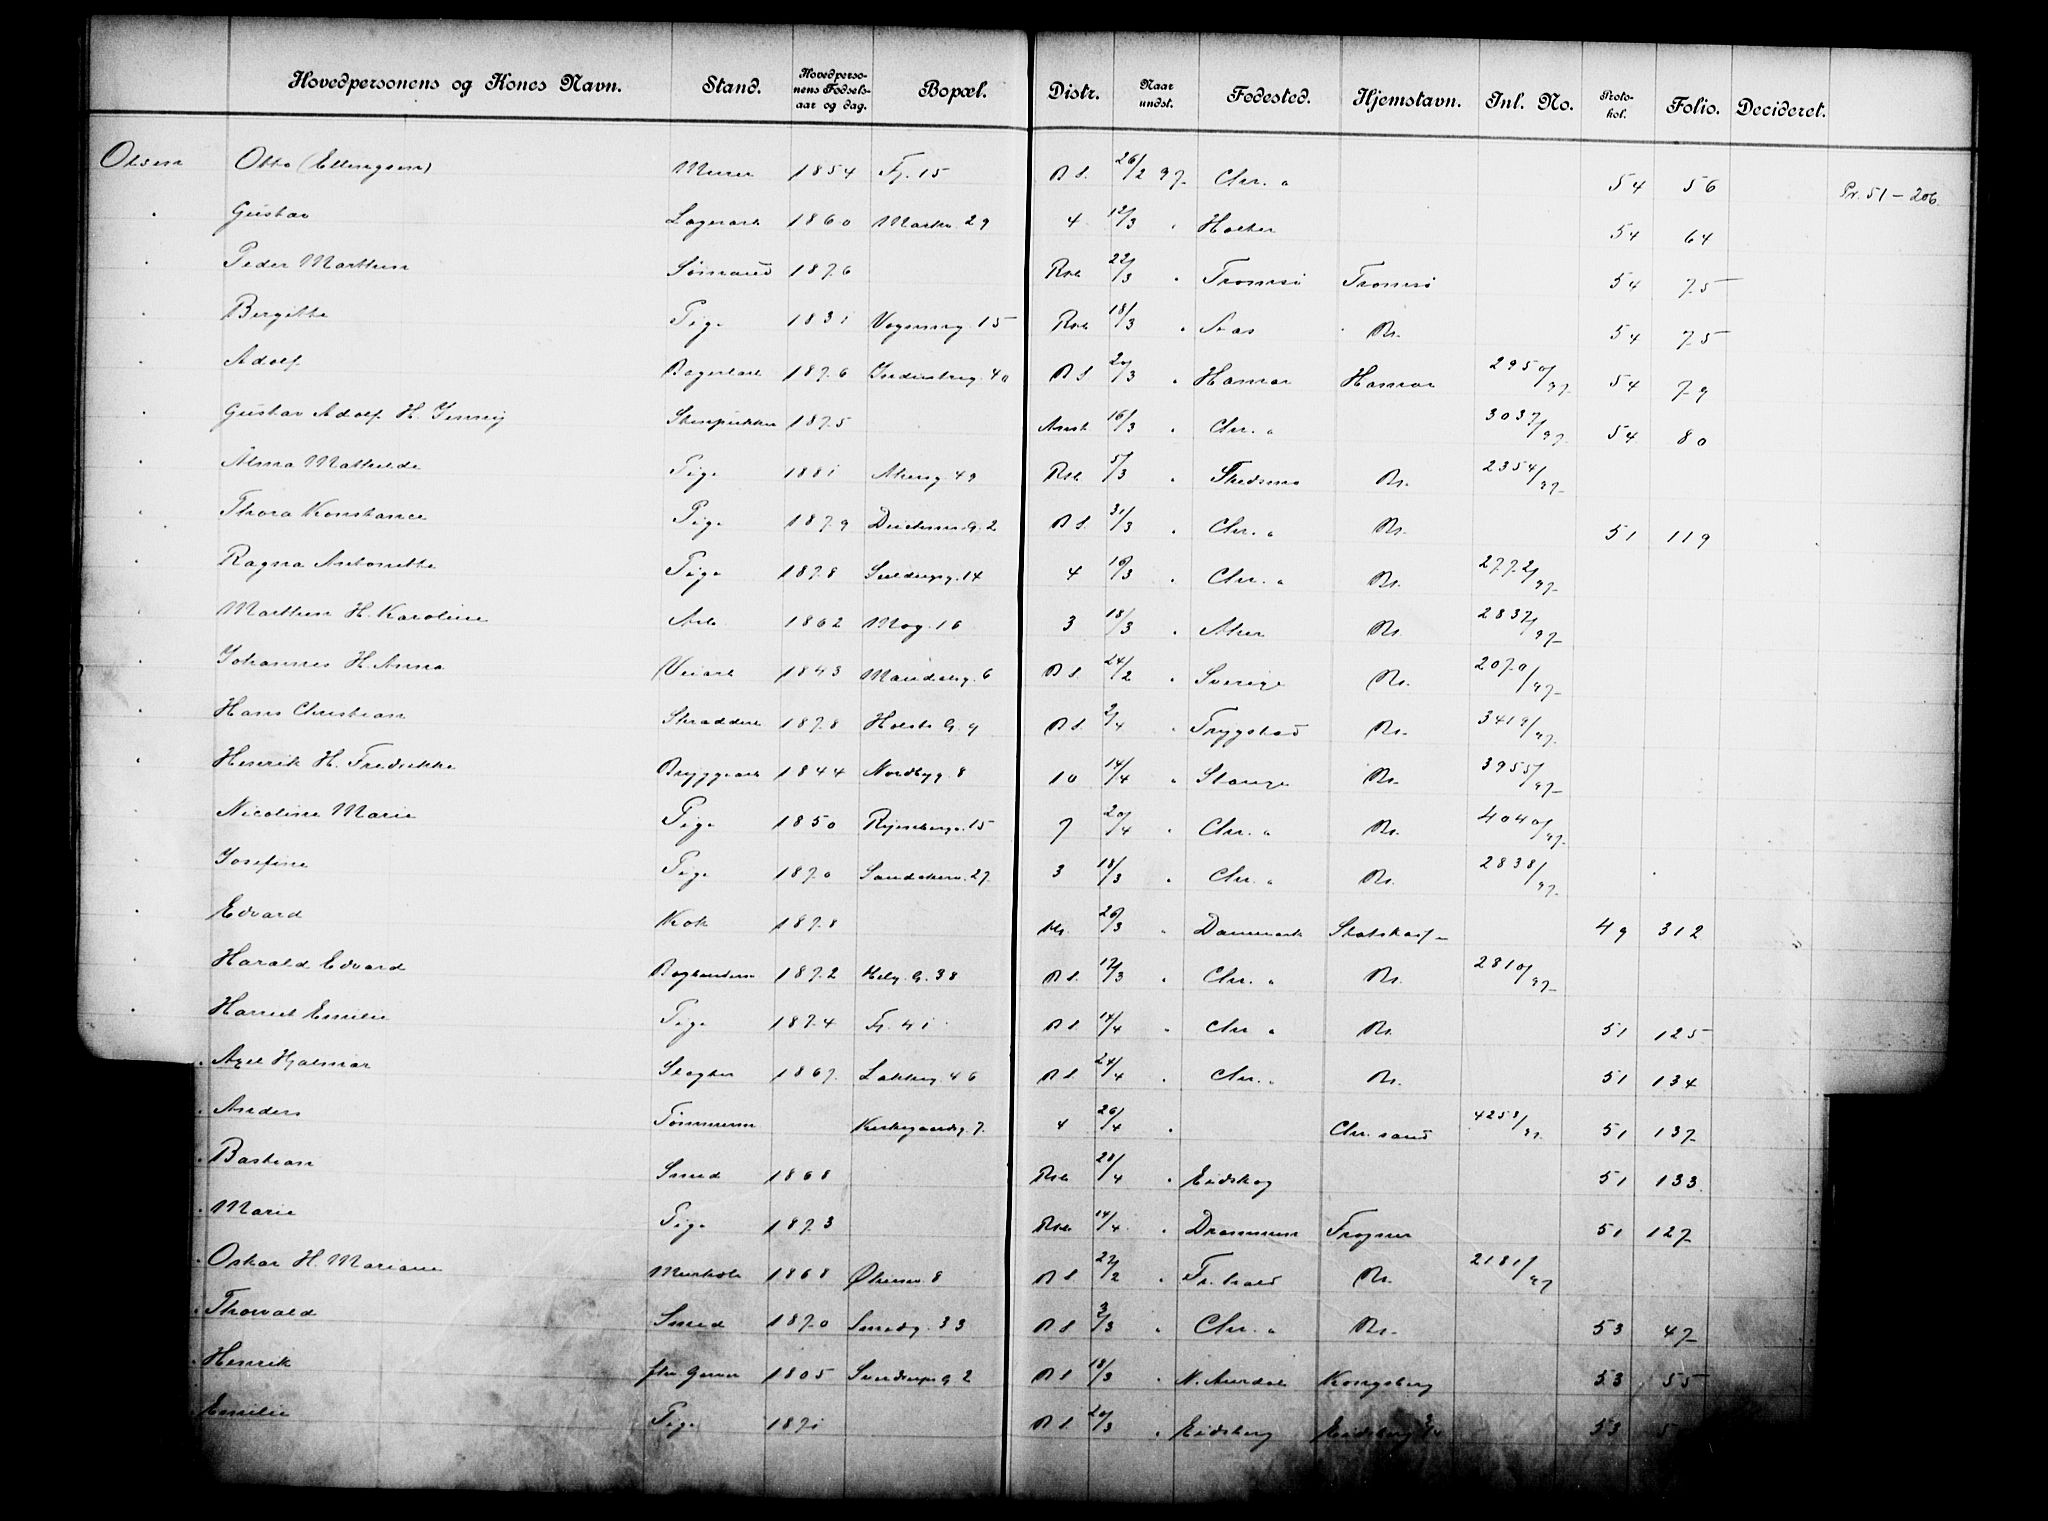 Hovedpersonens og Kones Navn. Stand. Hovedpersonens Fødselsaar og dag. Bopæl. Distr. Naar undst. Fødested. Hjemstavn. Inl. No. Protokol. Folio. Decideret.
Olsen Otto (Ellingsen) Murer 1854 Fj. 15 B S. 26/2 97 Chr. a 54 56 Pr. 51 - 206
" Gustav Lagerarb 1860 Markv. 29 4 12/3 " Holter 54 64
" Peder Marthin Sømand 1876 Rsb 22/3 " Tromsø Tromsø 54 75
" Bergitte Pige 1831 Vognmg. 15 Rsb 18/3 " Aas Bs. 54 75
" Adolf Bagerlærl 1876 40 B S 20/3 " Hamar Hamar 2950/97 54 79
" Gustav Adolf H. Jenny Stenpukker 1875 16/3 " Chr. a 3037/97 54 80
" Alma Mathilde Pige 1881 Akersg 49 Rsb 5/3 " Skedsmo Bs. 2354/97
" Thora Konstance Pige 1879 Deichmns G. 2 B S. 31/3 " Chr. a Bs. 51 119
" Ragna Antonette Pige 1878 14 4 10/3 " Chr. a Bs. 2772/97
" Marthin H. Karoline Arb 1862 Mog. 16 3 18/3 " Aker Bs. 2837/97
" Johannes H. Anna Veiarb 1843 Maridalsg. 6 B S. 24/2 " Sverige Bs. 2070/97
" Hans Christian Skrædder 1878 Holsts G. 9 B S. 2/4 " Trygstad Bs. 3419/97
" Henrik H. Fredrikke Bryggearb 1844 Nordbyg. 8 10 14/4 " Stange Bs. 3955/97
" Nicoline Marie Pige 1850 15 7 20/4 " Chr. a Bs. 4040/97
" Josefine Pige 1870 Sandakerv. 27 3 18/3 " Chr. a Bs. 2838/97
" Edvard Kok 1878 26/3 " Danmark Statskasse 49 312
" Harald Edvard Bogbinder 1872 Helg. G. 38 B S. 12/3 " Chr. a Bs. 2810/97
" Harriet Emilie Pige 1874 Fj. 41 B S. 14/4 " Chr. a Bs. 51 125
" Axel Hjalmar Slagter 1867 Lakkeg. 46 B S. 24/4 " Chr. a Bs. 51 134
" Anders Tømmerm Kirkegaardsg. 7. 4 26/4 " Chr. sand 4253/97 51 137
" Bastian Smed 1868 Rsb 28/4 " Eidskog 51 133
" Marie Pige 1873 Rsb 14/4 " Drammen Frogner 51 127
" Oskar H. Mariane Murhdl 1868 Økernv. 8 B S 22/2 " Fr. hald Bs. 2181/97
" Thorvald Smed 1870 Smedg. 33 B S 3/3 " Chr. a Bs. 53 47
" Henrik fhv Garver 1805 Sverdrups G. 2 B S 18/3 " N. Aurdal Kongsberg 53 55
" Emilie Pige 1871 B S. 20/3 " Eidsberg Eidsberg 53 5